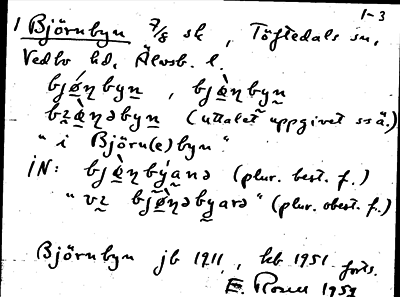 1-3
1 Björnbyn 7/8 sk, Töftedals sn,
Vedbo hd, Älvsb. l.
bjǿɳbyn, bjø̀ɳbyn
bzø̀ɳəbyn (uttalet uppgivet ssä.)
"i Björn(e)byn"
iN: bjø̀ɳbýanə (plur. best. f.)
"vz bjø̀ɳəbyarə" (plur. obest. f.)
Björnbyn jb 1911, kb 1951 forts.